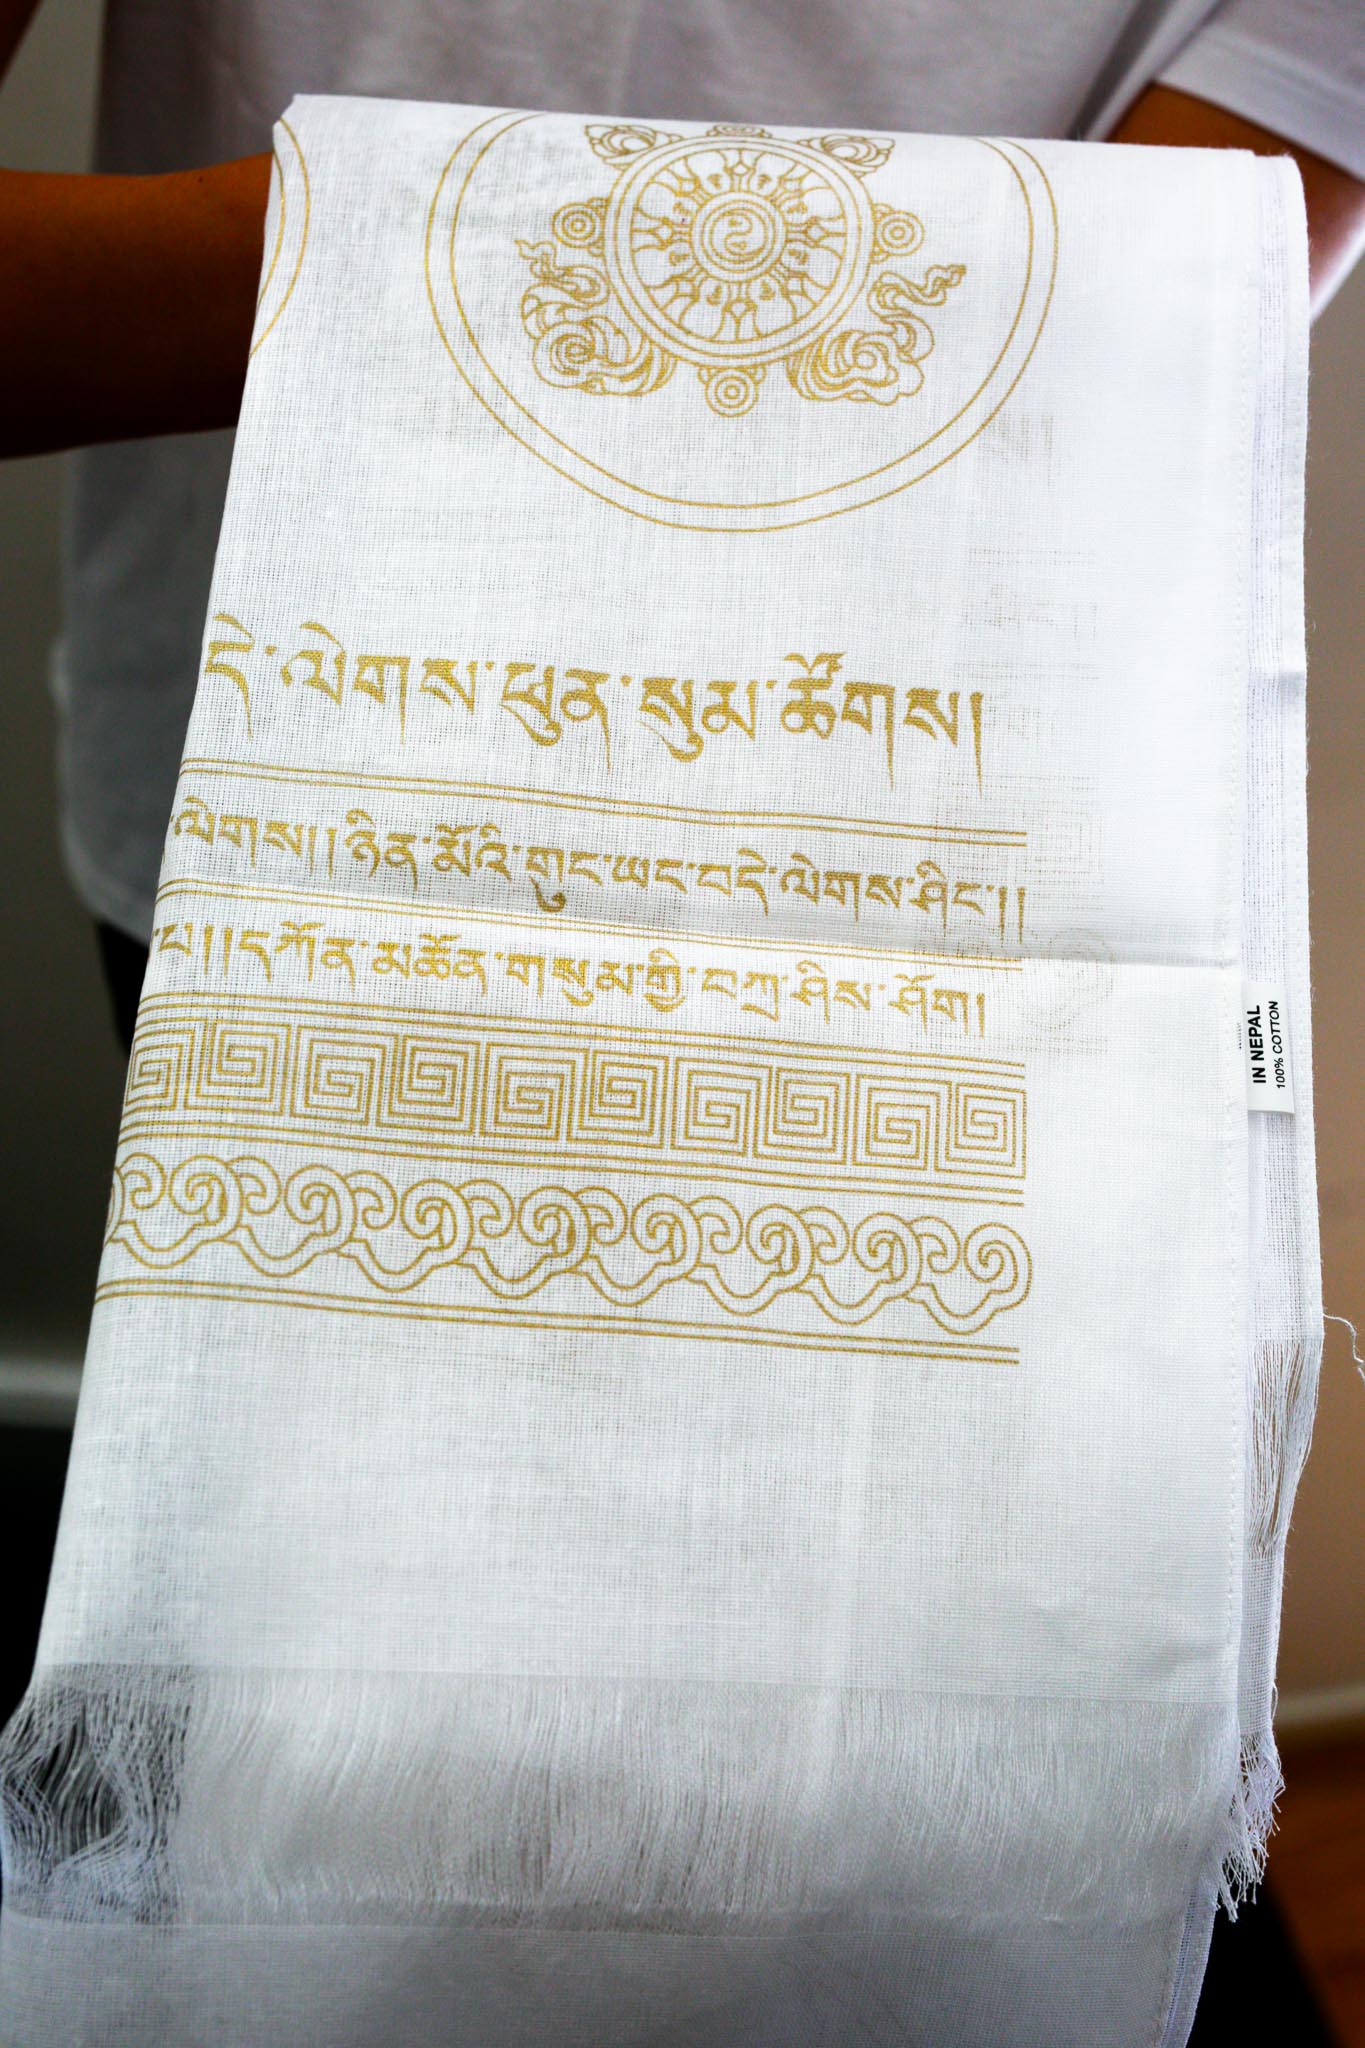 དེ་ལེགས་ཕུན་སུམ་ཚོགས།
ལེགས།།ཉིན་མོའི་གུང་ཡང་བདེ་ལེགས་ཤིང་།།
པ།།དཀོན་མཆོན་གསུམ་གྱི་བཀྲ་ཤིས་ཤོག།
IN NEPAL
100% COTTON